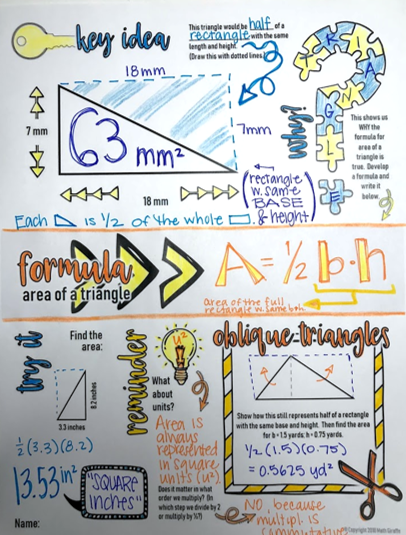 key idea
This triangle would be half of a
rectangle with the same
length and height.
(Draw this with dotted lines.)
18mm
7 mm
7mm
63 mm²
18 mm
(rectangle
w. same
BASE
& height)
Each is 1/2 of the whole
Why?
TRIANGLE
This shows us
WHY the
formula for
area of a
triangle is
true. Develop
a formula and
write it
below.
formula
area of a triangle
A = 1/2 b·h
area of the full
rectangle w. same b·h
try it
Find the
area:
8.2 inches
3.3 inches
1/2 (3.3)(8.2)
13.53 in²
"SQUARE
inches"
Name:
reminder
u²
What
about
units?
Area is
always
represented
in square
units (u²).
Does it matter in what
order we multiply? (In
which step we divide by 2
or multiply by ½?)
NO, because
multipl. is
commutative
oblique triangles
Show how this still represents half of a rectangle
with the same base and height. Then find the area
for b = 1.5 yards; h = 0.75 yards.
1/2 (1.5)(0.75)
= 0.5625 yd²
Copyright 2018 Math Giraffe